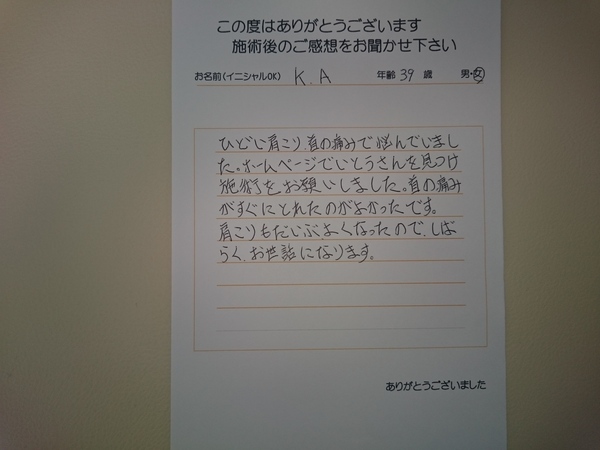 この度はありがとうございます
施術後のご感想をお聞かせ下さい
お名前(イニシャルOK) K.A 年齢 39 歳 男・女
ひどい肩こり、首の痛みで悩んでいまし
た。ホームページでいとうさんを見つけ
施術をお願いしました。首の痛み
がすぐにとれたのがよかったです。
肩こりもだいぶよくなったので、しば
らく、お世話になります。
ありがとうございました